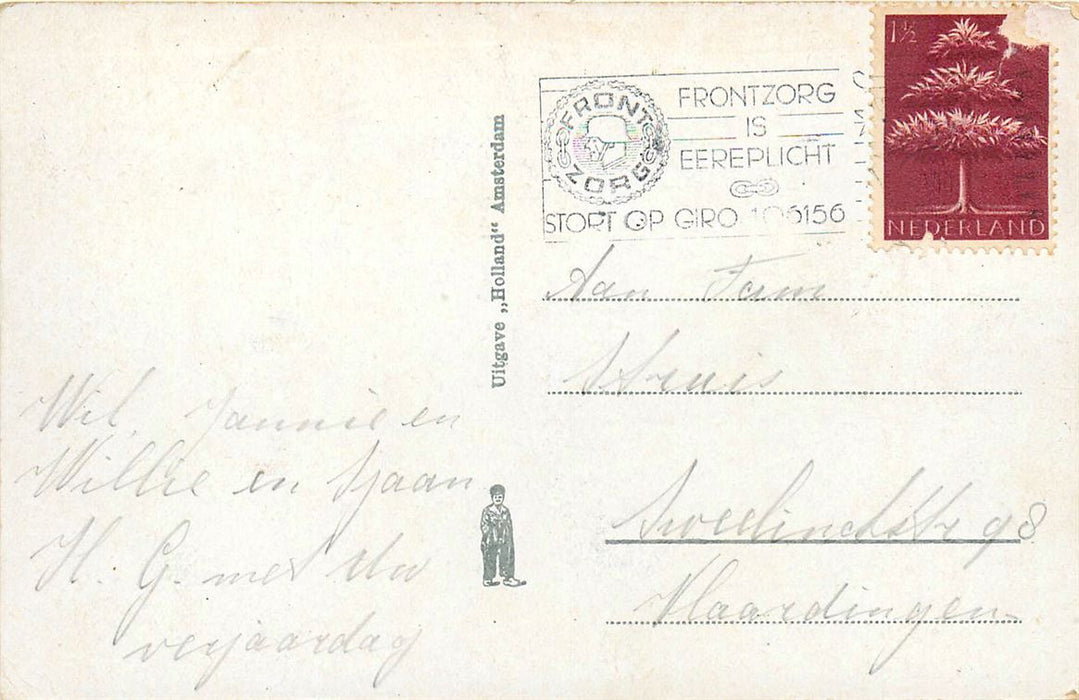 Wil, Jannie en
Willie en Sjaan
H. G. met uw
verjaardag
Uitgave „Holland“ Amsterdam
FRONT
ZORG
FRONTZORG
IS
EEREPLICHT
STORT OP GIRO 106156
1½
NEDERLAND
Aan Fam
Struis
Sweelinckstr 98
Vlaardingen